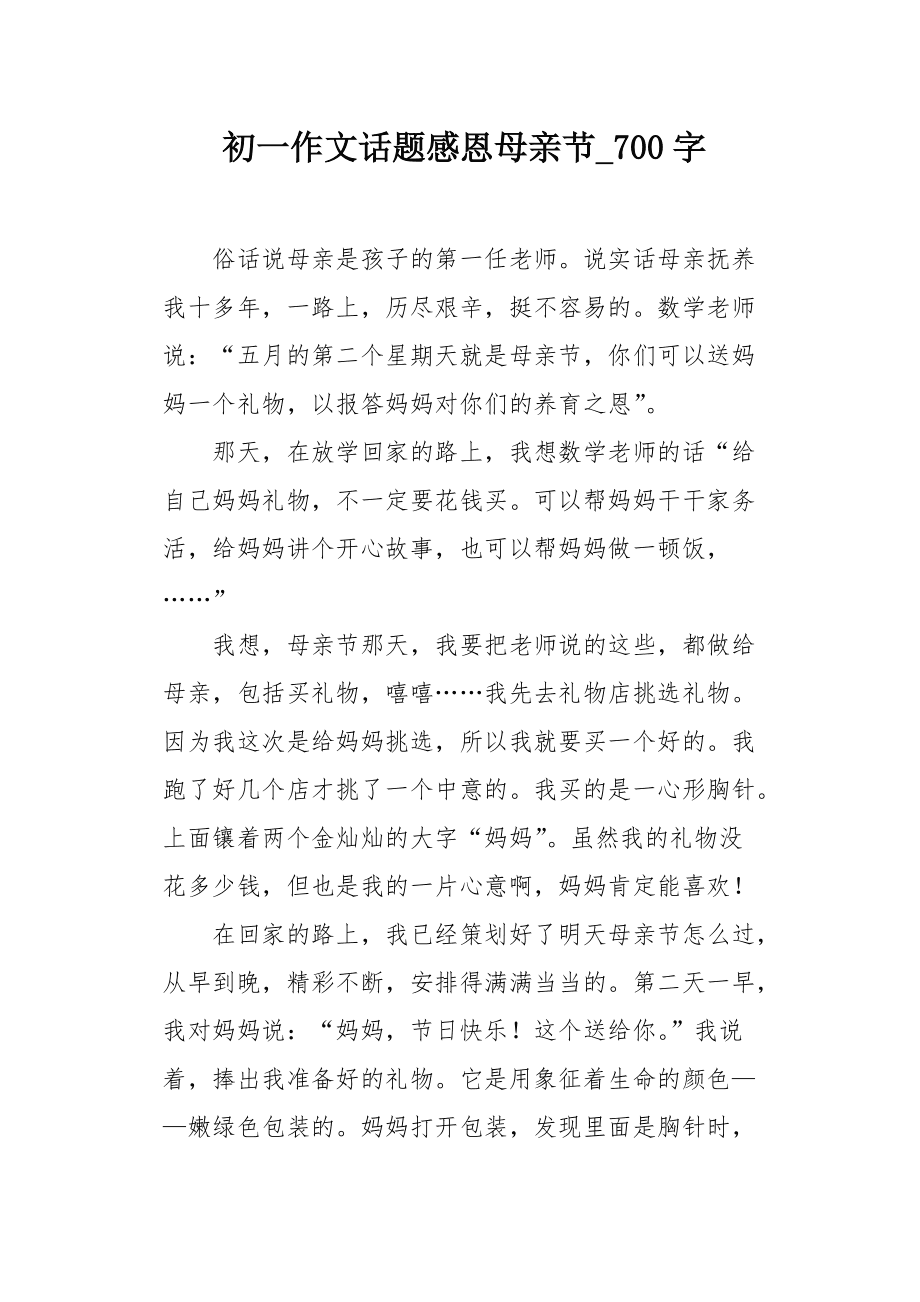 初一作文话题感恩母亲节_700字
俗话说母亲是孩子的第一任老师。说实话母亲抚养
我十多年，一路上，历尽艰辛，挺不容易的。数学老师
说：“五月的第二个星期天就是母亲节，你们可以送妈
妈一个礼物，以报答妈妈对你们的养育之恩”。
那天，在放学回家的路上，我想数学老师的话“给
自己妈妈礼物，不一定要花钱买。可以帮妈妈干干家务
活，给妈妈讲个开心故事，也可以帮妈妈做一顿饭，
……”
我想，母亲节那天，我要把老师说的这些，都做给
母亲，包括买礼物，嘻嘻……我先去礼物店挑选礼物。
因为我这次是给妈妈挑选，所以我就要买一个好的。我
跑了好几个店才挑了一个中意的。我买的是一心形胸针。
上面镶着两个金灿灿的大字“妈妈”。虽然我的礼物没
花多少钱，但也是我的一片心意啊，妈妈肯定能喜欢！
在回家的路上，我已经策划好了明天母亲节怎么过，
从早到晚，精彩不断，安排得满满当当的。第二天一早，
我对妈妈说：“妈妈，节日快乐！这个送给你。”我说
着，捧出我准备好的礼物。它是用象征着生命的颜色—
—嫩绿色包装的。妈妈打开包装，发现里面是胸针时，